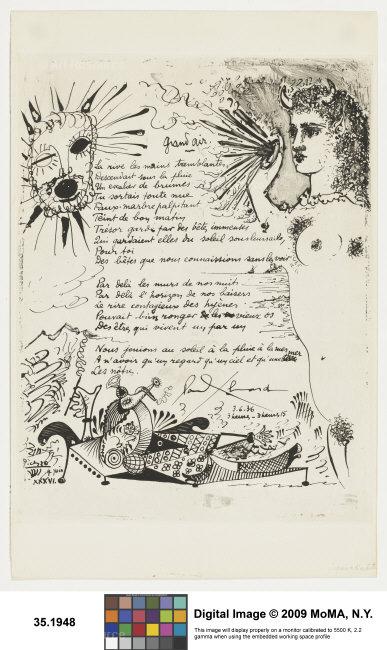 Grand air.
La rive les mains tremblantes
Descendant sur la pluie
Un escalier de brumes
Tu sortais toute nue
Faux marbre palpitant
Teint de bon matin
Trésor gardé par des bêtes immenses
Qui gardaient elles du soleil sous leurs ailes
Pour toi
Des bêtes que nous connaissions sans les voir
Par delà les murs de nos nuits
Par delà l'horizon de nos baisers
Le rire contagieux des hyènes
Pouvait bien ronger les vieux os
Des êtres qui vivent un par un
Nous jouions au soleil à la pluie à la mer
A n'avoir qu'un regard qu'un ciel et qu'une mer
Les nôtres.
Paul Eluard
3.6.36
3 heures - 3 heures 15
Picasso
4 juin
XXXVI.
35.1948
Digital Image © 2009 MoMA, N.Y.
This image will display properly on a monitor calibrated to 5500 K, 2.2
gamma when using the embedded working space profile